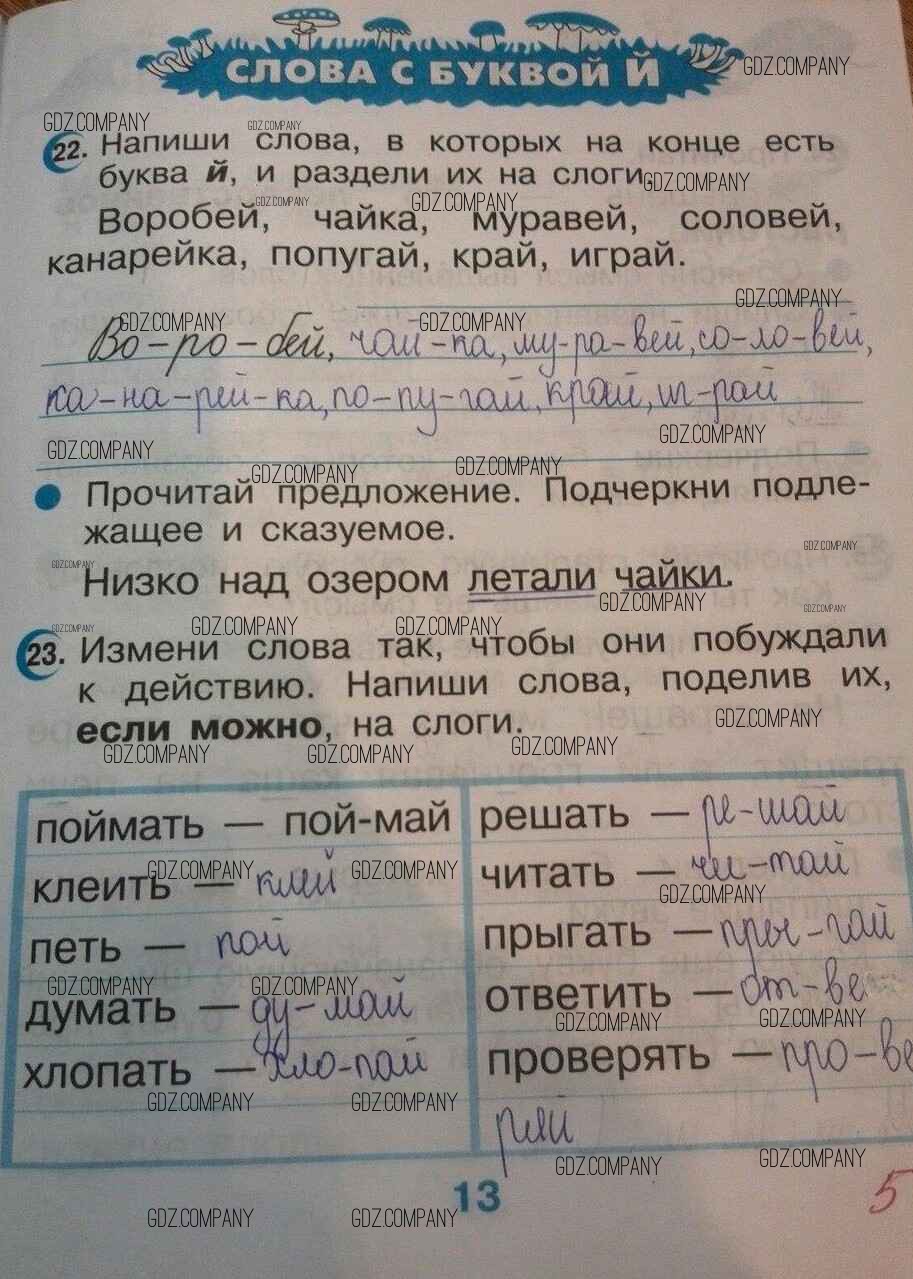 СЛОВА С БУКВОЙ Й
22. Напиши слова, в которых на конце есть
буква й, и раздели их на слоги.
Воробей, чайка, муравей, соловей,
канарейка, попугай, край, играй.
Во-ро-бей, чай-ка, му-ра-вей, со-ло-вей,
ка-на-рей-ка, по-пу-гай, край, иг-рай
Прочитай предложение. Подчеркни подле-
жащее и сказуемое.
Низко над озером летали чайки.
23. Измени слова так, чтобы они побуждали
к действию. Напиши слова, поделив их,
если можно, на слоги.
поймать — пой-май
клеить — клей
петь — пой
думать — ду-май
хлопать — хло-пай
решать — ре-шай
читать — чи-тай
прыгать — пры-гай
ответить — от-ве
проверять — про-ве
ряй
13
5
GDZ.COMPANY